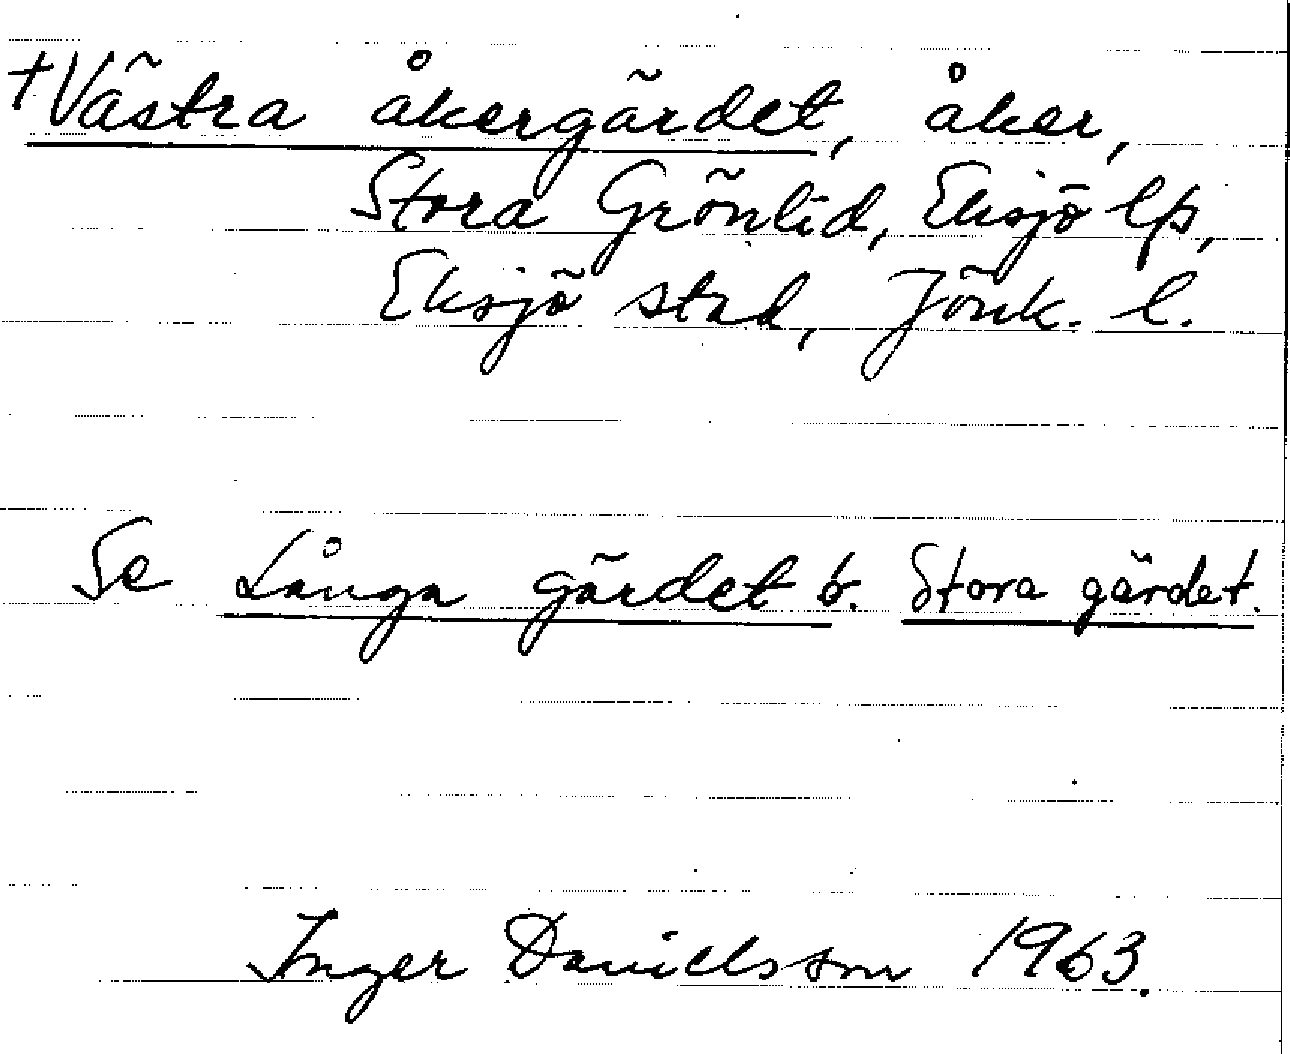 +Västra åkergärdet, åker,
Stora Grönlid, Eksjö lfs,
Eksjö stad, Jönk. l.
Se Långa gärdet b. Stora gärdet.
Inger Danielsson 1963.